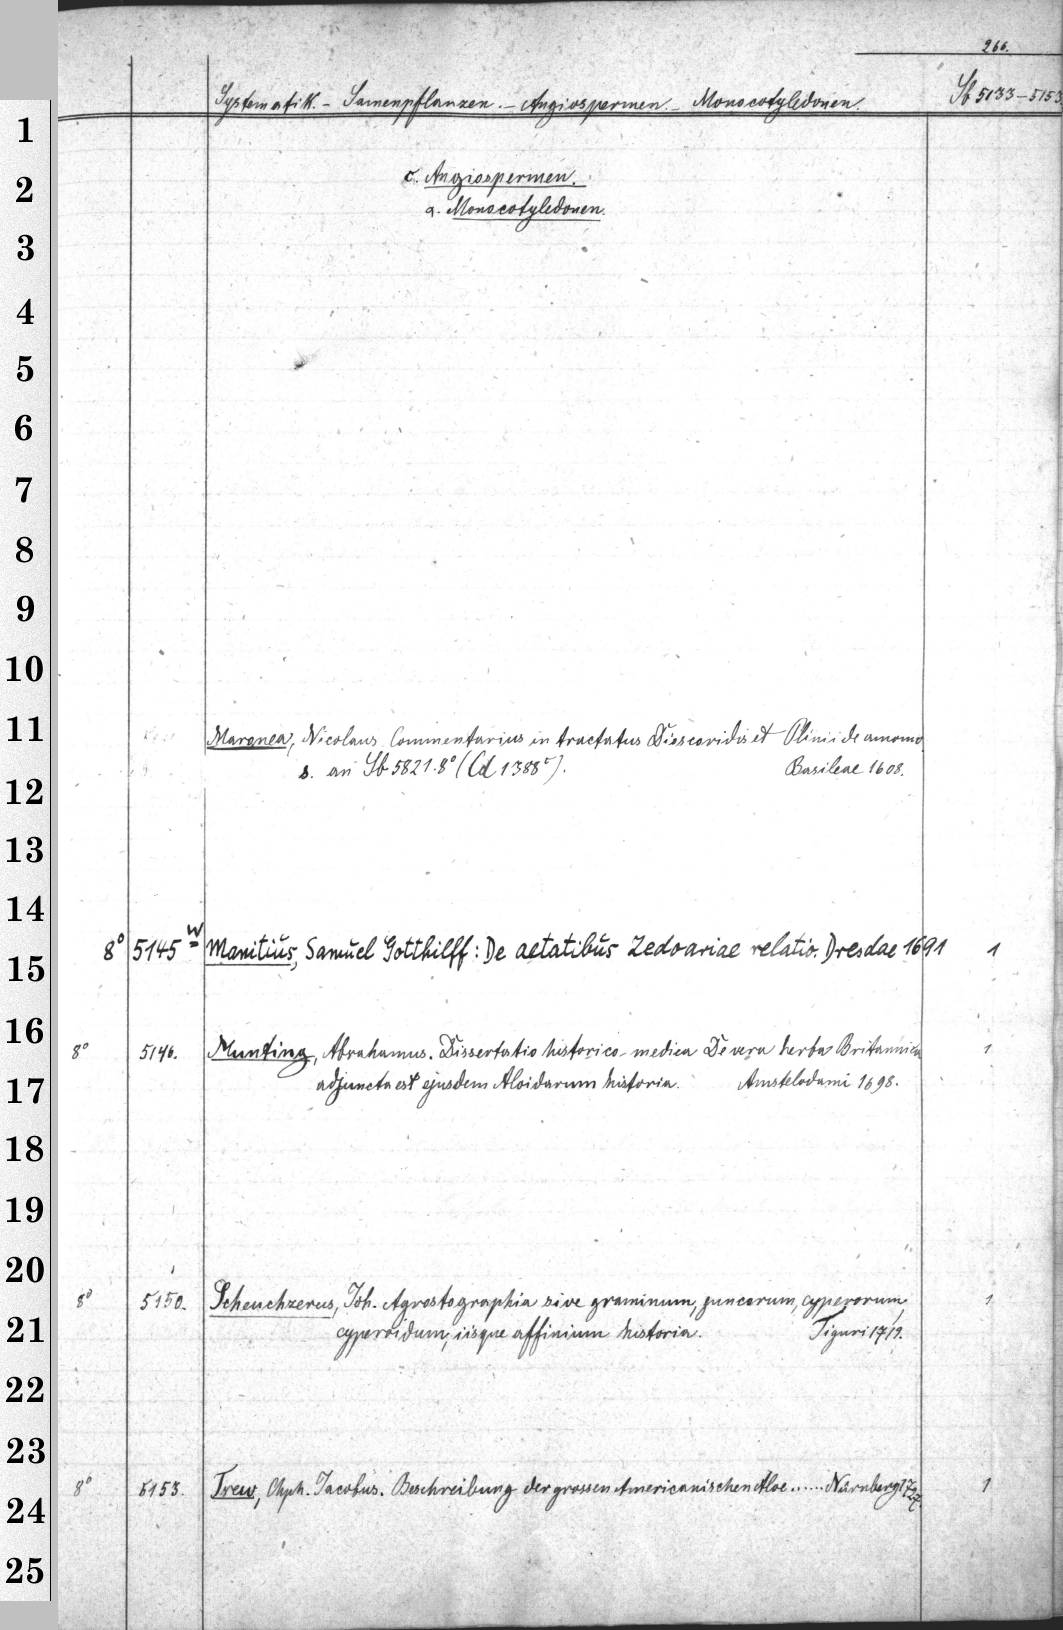 266.
Systematik. - Samenpflanzen. - Angiospermen. - Monocotyledonen. Sb 5133-5153
c. Angiospermen.
a. Monocotyledonen.
Maronea, Nicolaus Commentarius in tractatus Dioscoridis et Plinii de amomo
s. an Sb 5821.8° (Cd 1388ᶜ). Basileae 1608.
8° 5145 ᵂ Manitius, Samuel Gotthilff: De aetatibus Zedoariae relatio. Dresdae 1691 1
8° 5146. Munting, Abrahamus. Dissertatio historico-medica De vera herba Britannica 1
adjuncta est ejusdem Aloidarum historia. Amstelodami 1698.
8° 5150. Scheuchzerus, Joh. Agrostographia sive graminum, juncorum, cyperorum, 1
cyperoidum, iisque affinium historia. Tiguri 1719.
8° 5153. Trew, Chph. Jacobus. Beschreibung der grossen Americanischen Aloe ...... Nürnberg 1727. 1
1
2
3
4
5
6
7
8
9
10
11
12
13
14
15
16
17
18
19
20
21
22
23
24
25